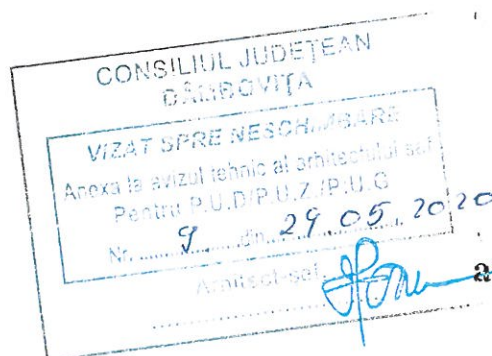 CONSILIUL JUDEȚEAN
DÂMBOVIȚA
VIZAT SPRE NESCHIMBARE
Anexa la avizul tehnic al arhitectului șef
Pentru P.U.D/P.U.Z./P.U.G
Nr. 9 din 29 05 2020
Arhitect-șef
a